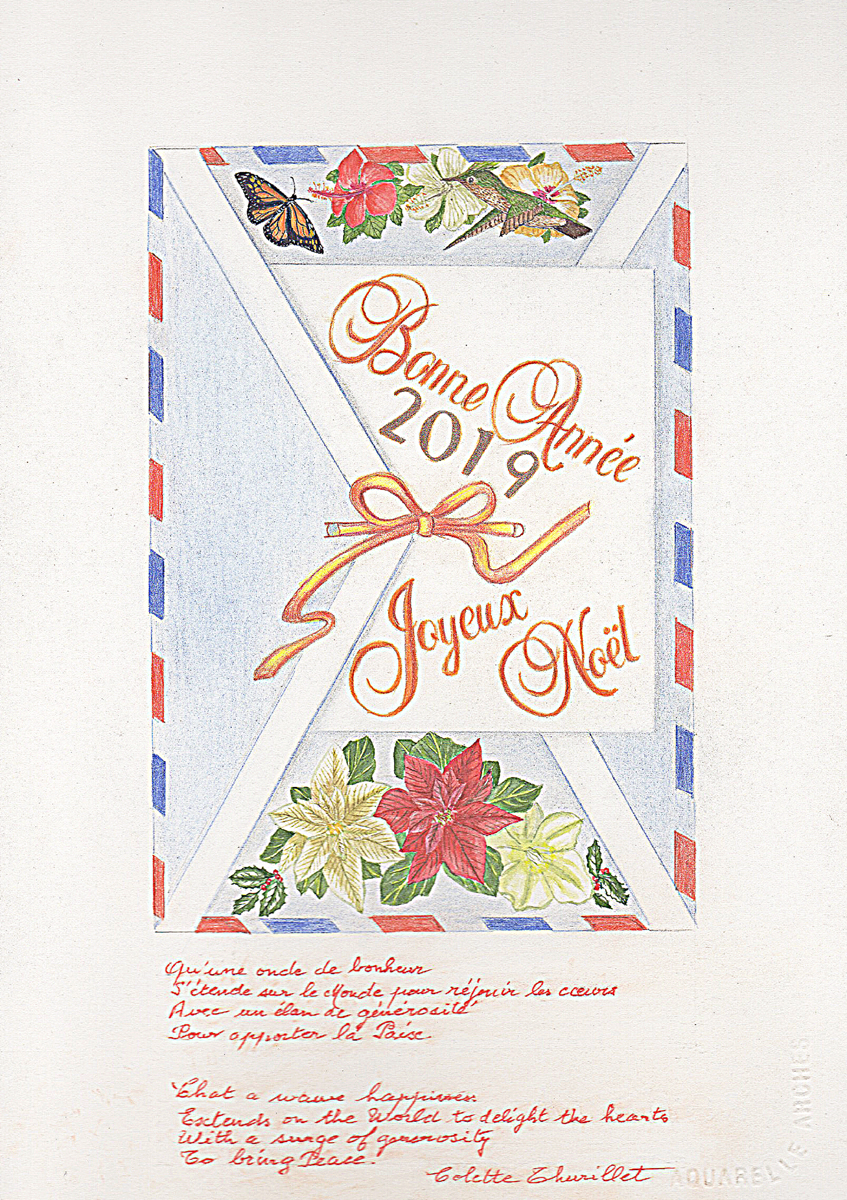 Bonne Année
2019
Joyeux Noël
Qu'une onde de bonheur
S'étende sur le Monde pour réjouir les cœurs
Avec un élan de générosité
Pour apporter la Paix.
That a wave happiness
Extends on the World to delight the hearts
With a surge of generosity
To bring Peace.
Colette Thurillet
AQUARELLE ARCHES